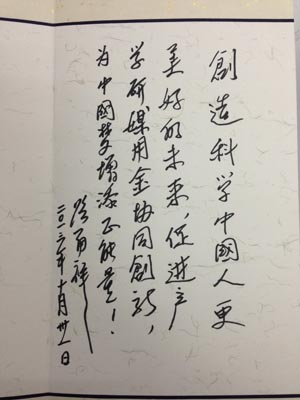 創造科学中國人更
美好的未来，促進产
学研媒用金协同創新，
为中國梦增添正能量！
路甬祥
二〇一三年十月卅一日